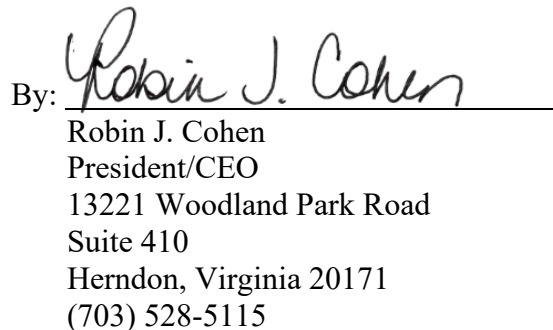 By: Robin J. Cohen
Robin J. Cohen
President/CEO
13221 Woodland Park Road
Suite 410
Herndon, Virginia 20171
(703) 528-5115